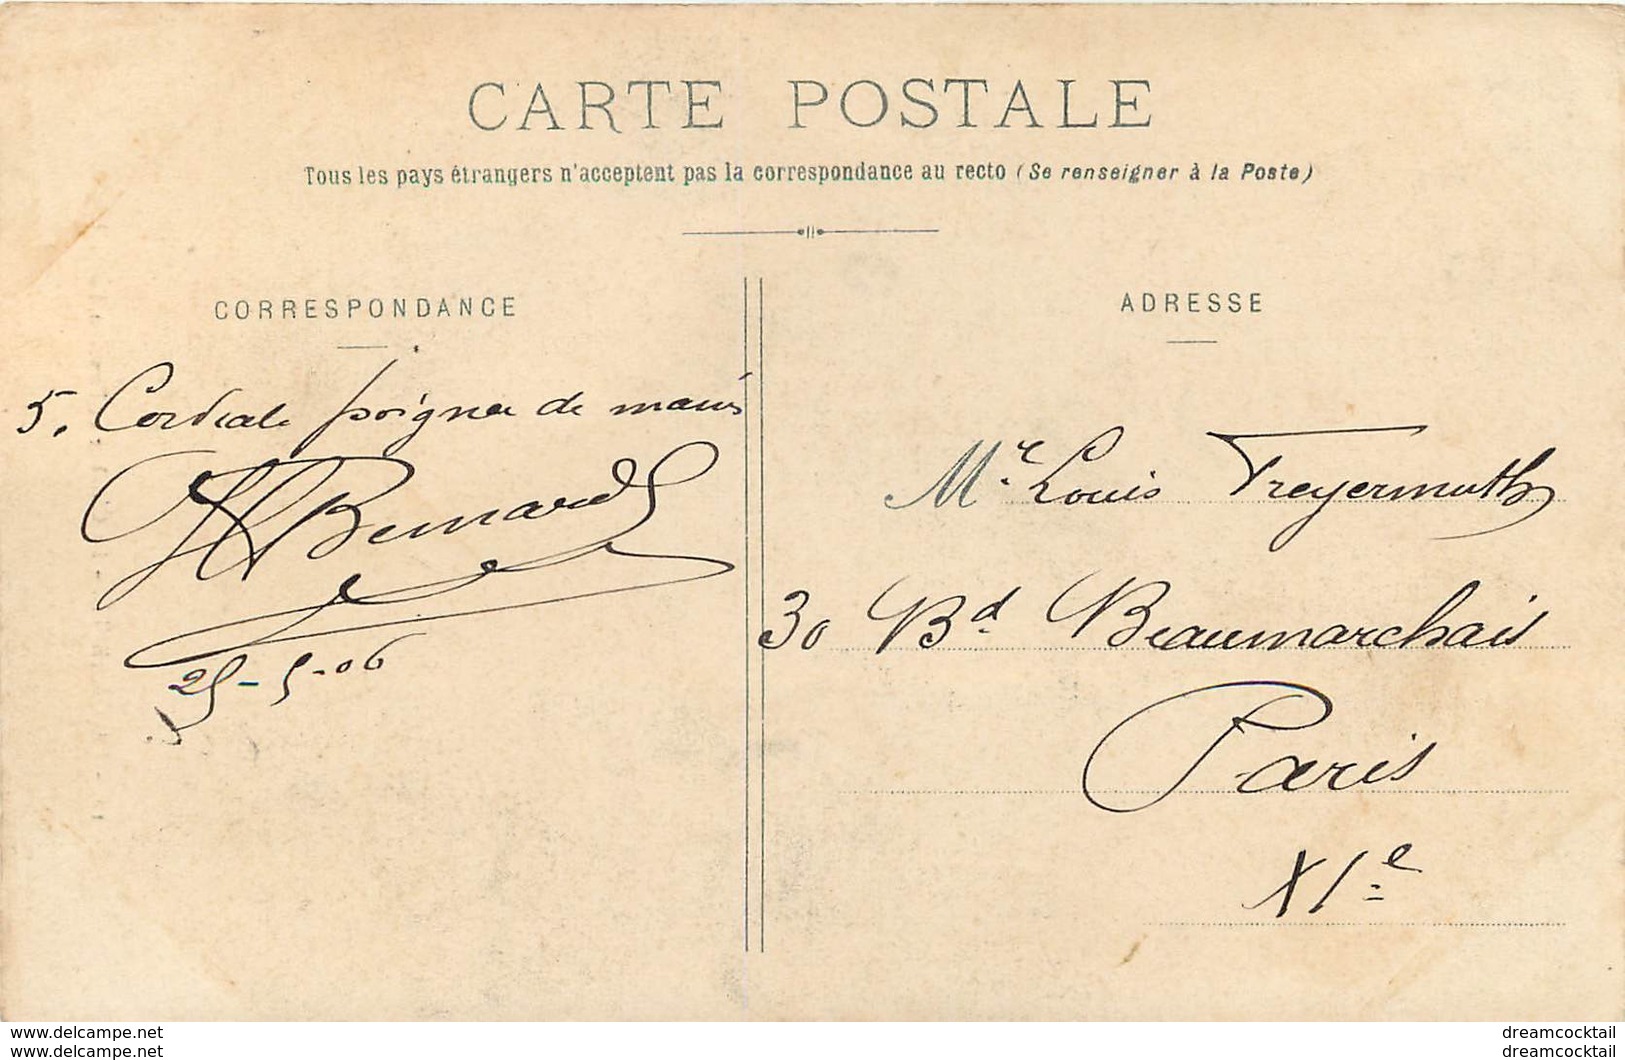 CARTE POSTALE
Tous les pays étrangers n'acceptent pas la correspondance au recto (Se renseigner à la Poste)
CORRESPONDANCE
ADRESSE
5. Cordiale poignée de mains
Bernard
25-5-06
Mr. Louis Freyermuth
30 Bd. Beaumarchais
Paris
XIe
www.delcampe.net
www.delcampe.net
dreamcocktail
dreamcocktail